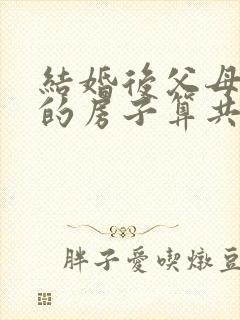 結婚後父母
的房子算共
胖子愛喫燉豆